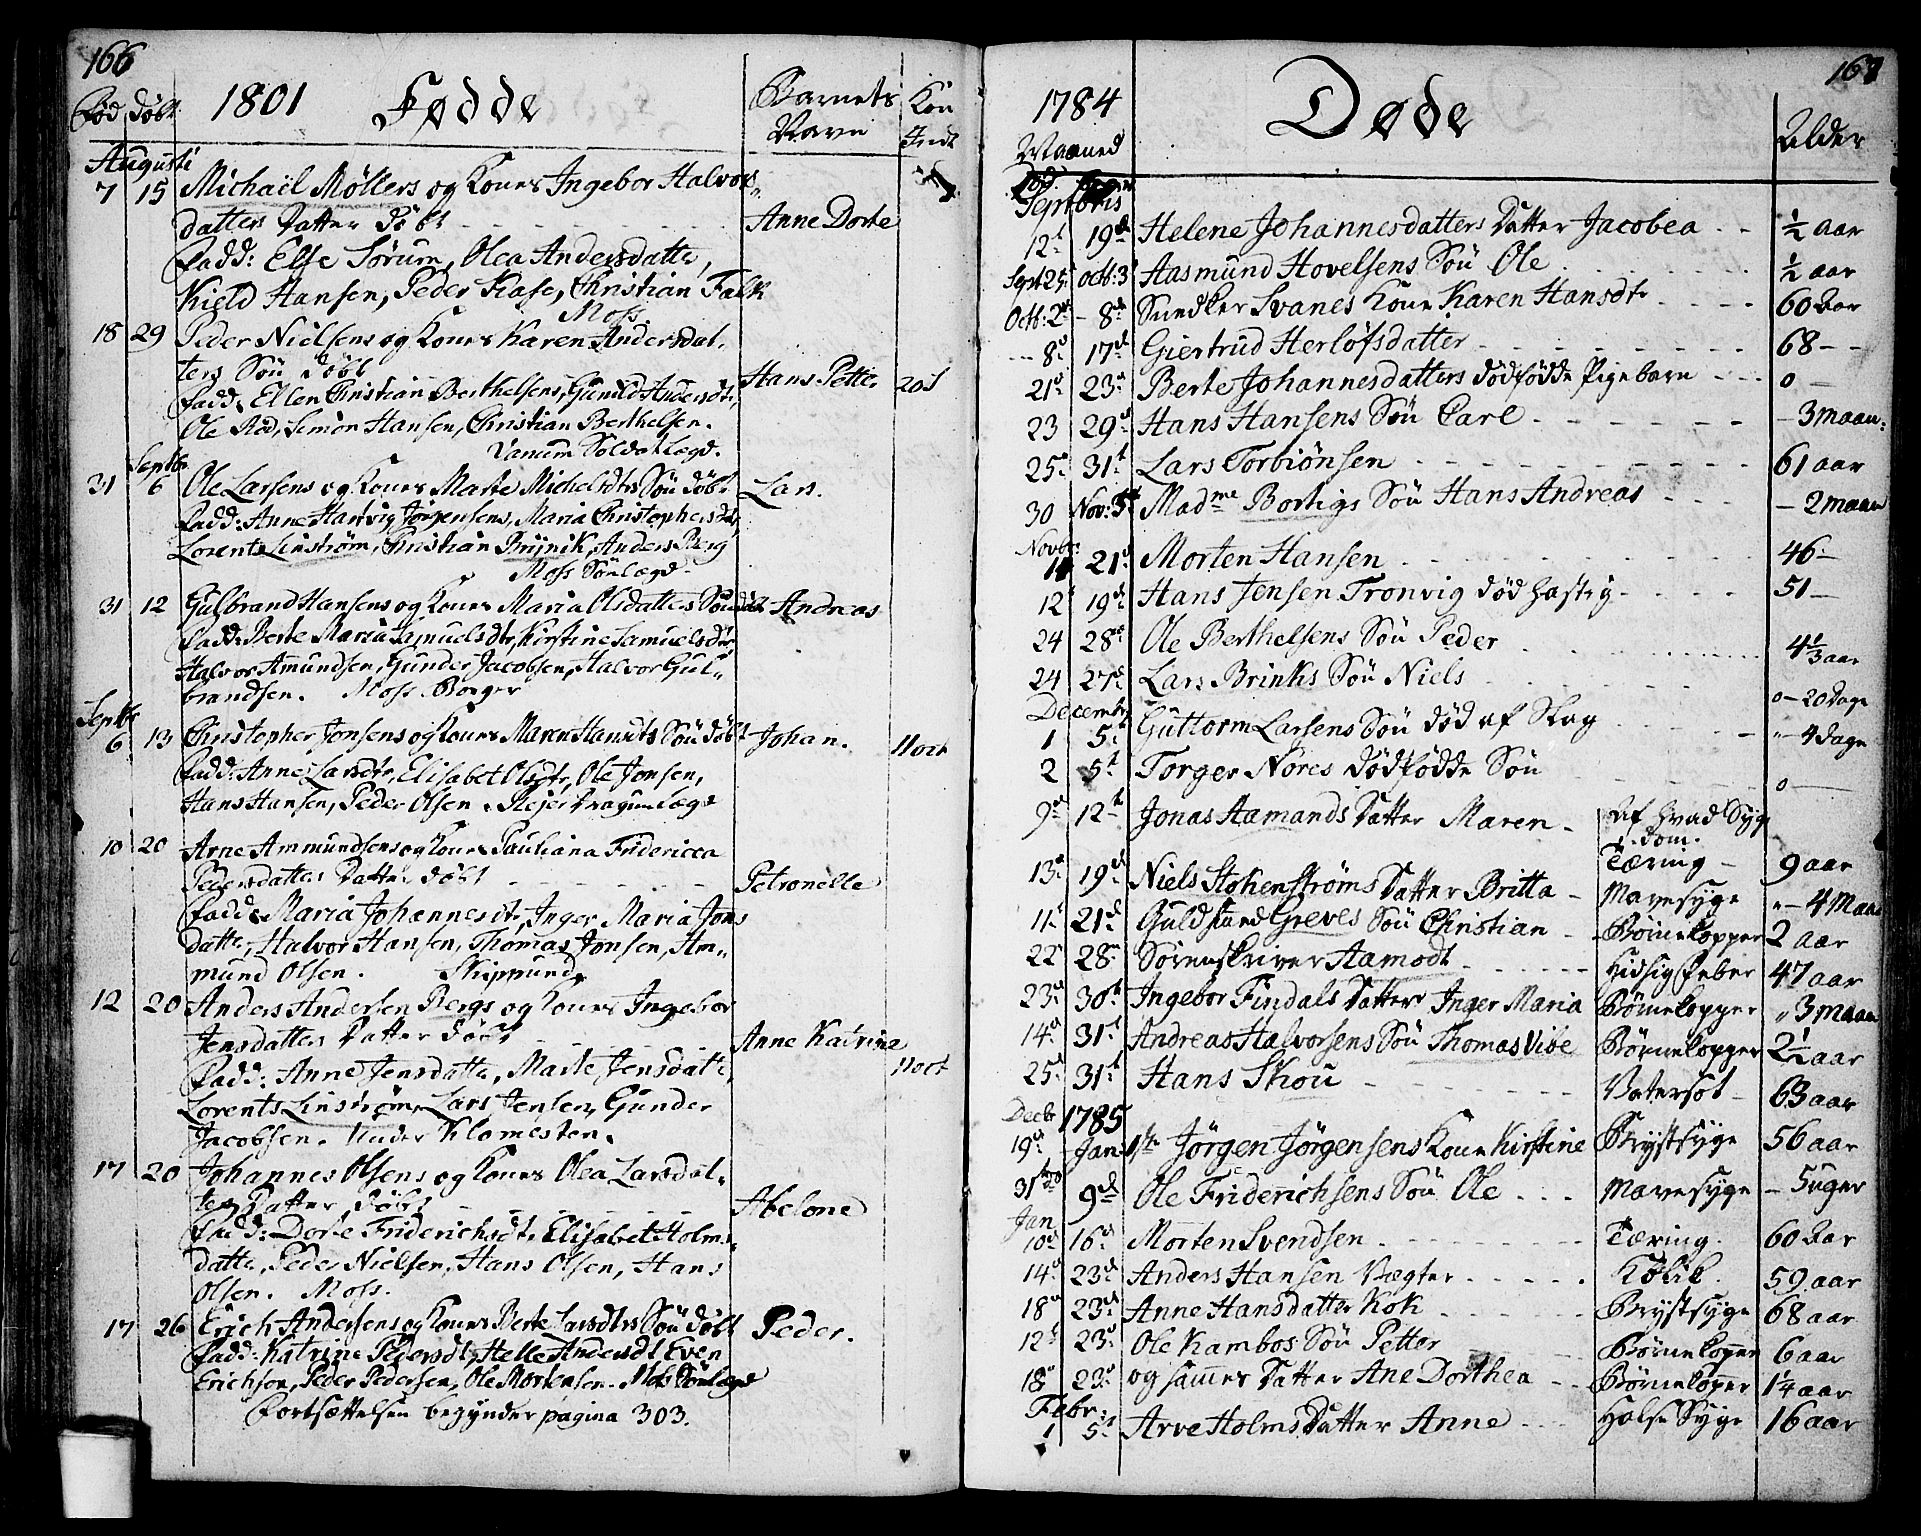 166
1801 Fødde
Fød døbt
Barnets Navn
Kon
Augusti
7 15 Michaël Møllers og Kones Ingebor Halvors
datters Datter døbt Anne Dorte
Fadd: Else Sørum, Olea Andersdatte,
Kield Hansen, Peder Kase, Christian Falk
Moss
18 29 Peder Nielsens og Kones Karen Andersdat-
ters Søn døbt Hans Petter
Fadd: Ellen Christian Berthelsens, Gunild Andersdtr,
Ole Rød, Simon Hansen, Christian Berthelsen.
Vanum Soldatlægd.
Septbr
31 6 Ole Larsens og Kones Marte Michelsdtrs Søn døbt Lars.
Fadd: Anne Hartvig Jørgensens, Maria Christophersdtr,
Lorents Linstrøm, Christian Brÿnik, Anders Berg
Moss Sønlægd.
31 12 Gulbrand Hansens og Kones Maria Olsdatters Søn døbt Andreas
Fadd: Berte Maria Samuelsdtr, Kirstine Samuelsdtr,
Halvor Amundsen, Gunder Jacobsen, Halvor Gul-
brandsen. Moss Borger
Septbr
6 13 Christopher Jonsens og Kones Maren Hansdtrs Søn døbt Johan.
Fadd: Anne Larsdtr, Elisabet Olsdtr, Ole Jonsen,
Hans Hansen, Peder Olsen. Rejer Dragunlægd
10 20 Arne Ammundsens og Kones Pauliana Fridericca
Pedersdatters Datter døbt Petronelle
Fadd: Maria Johannesdtr, Inger Maria Jons
datte, Halvor Hansen, Thomas Jonsen, Am-
mund Olsen. Skipmunds
12 20 Anders Andersen Bergs og Kones Ingebor
Jensdatters Datter døbt Anne Katrine
Fadd: Anne Jensdatte, Marte Jensdatte,
Lorents Linstrøm, Lars Jensen, Gunder
Jacobsen. Under Klomesten.
17 20 Johannes Olsens og Kones Olea Larsdat-
ters Datter døbt Abelone
Fadd: Dorte Friderichsdtr, Elisabet Holms
datte, Peder Nielsen, Hans Olsen, Hans
Olsen. Moss.
17 26 Erich Andersens og Kones Berte Larsdtrs Søn døbt Peder.
Fadd: Katrine Pedersdt, Helle Andersdt Even
Erichsen, Peder Pedersen, Ole Mortensen. Moss Sønlægd
Fortsættelsen begynder pagina 303.
167
1784 Døde
Maaned
Alder
Septbris
12 19 Helene Johannesdatters Datter Jacobea ½ aar
Sept 25 Octb: 3 Aasmund Hovelsens Søn Ole ½ aar
Octb: 2 - 8 Sundker Svanes Kone Karen Hansdtr 60 Aar
8 17 Giertrud Herløfsdatter 68
21 23 Berte Johannesdatters dødfødde Pigebarn 0
23 29 Hans Hansens Søn Carl - 3 maan:
25 31 Lars Torbiönsen 61 aar
30 Nov: 5 Madme Bortigs Søn Hans Andreas - 2 maan
Novbr
11 21 Morten Hansen 46
12 19 Hans Jensen Tronvig død hastig 51
24 28 Ole Berthelsens Søn Peder 4⅓ aar
24 27 Lars Brinks Søn Niels 0 - 20 dage
Decembr
1 5 Guttorm Larsens Søn død af Slag - 4 dage
2 5 Torger Nöres dødfødde Søn 0
9 12 Jonas Aamands Datter Maren
Af hvad Syg-
dom.
Tæring 9 aar
13 19 Niels Stokenstrøms Datter Britta - Mavesyge - 4 Maan
11 21 Guldstand Greves Søn Christian - Børnekopper 2 aar
22 28 Sorenskriver Aamodt Hidsig Feber 47 aar
23 30 Ingebor Findals Datter Inger Maria Børnekopper 3 maan
14 31 Andreas Halvorsens Søn Thomas Vibe Børnekopper 2½ aar
25 31 Hans Skou Vatersot 63 aar
Decb 1785
19 Jan: 1ste Jörgen Jörgensens Kone Kirstine Brystsyge 56 aar
31 9 Ole Friderichsens Søn Ole Mavesyge - 5 uger
Jan
10 16 Morten Svendsen Tæring. 60 Aar
14 23 Anders Hansen Vægter Kolik. 59 aar
18 23 Anne Hansdatter Kok Brystsyge 68 aar
12 23 Ole Kambos Søn Petter Børnekopper 6 aar
18 23 og sammes Datter Ane Dorthea Børnekopper 1¼ aar
Febr:
1 5 Arve Holms Datter Anne Halse Syge 16 aar